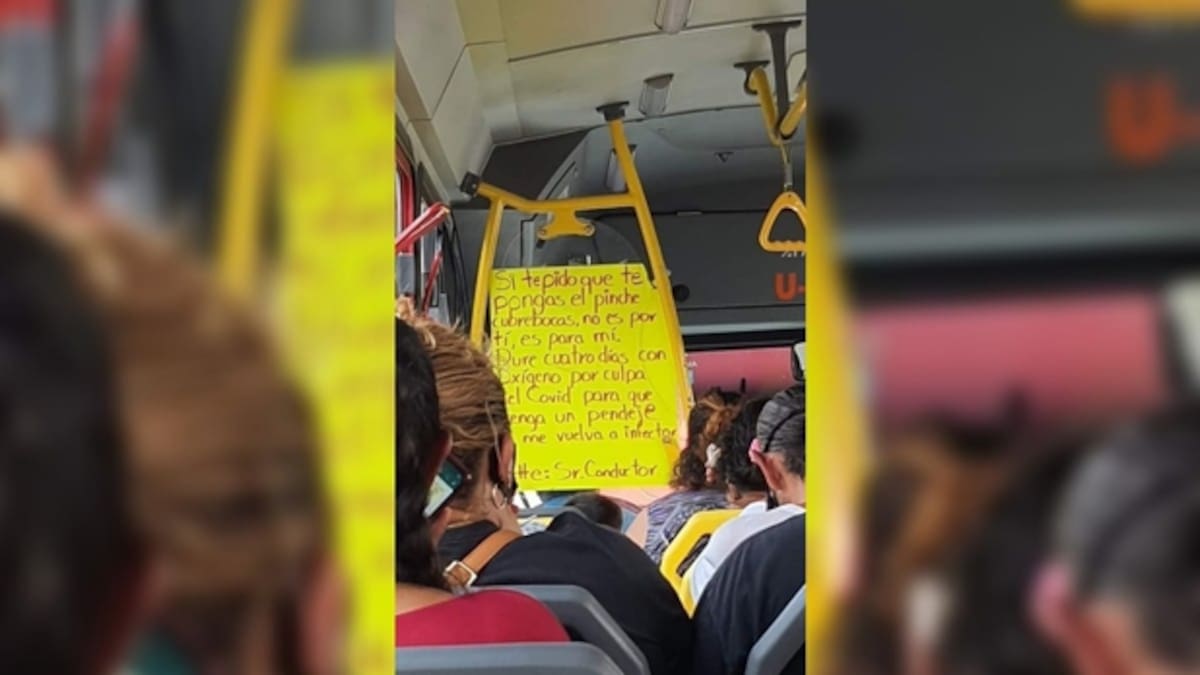 Si te pido que te
pongas el pinche
cubrebocas, no es por
tí, es para mí.
Dure cuatro días con
oxígeno por culpa
del Covid para que
venga un pendeje
me vuelva a infectar
Atte: Sr. Conductor
U-